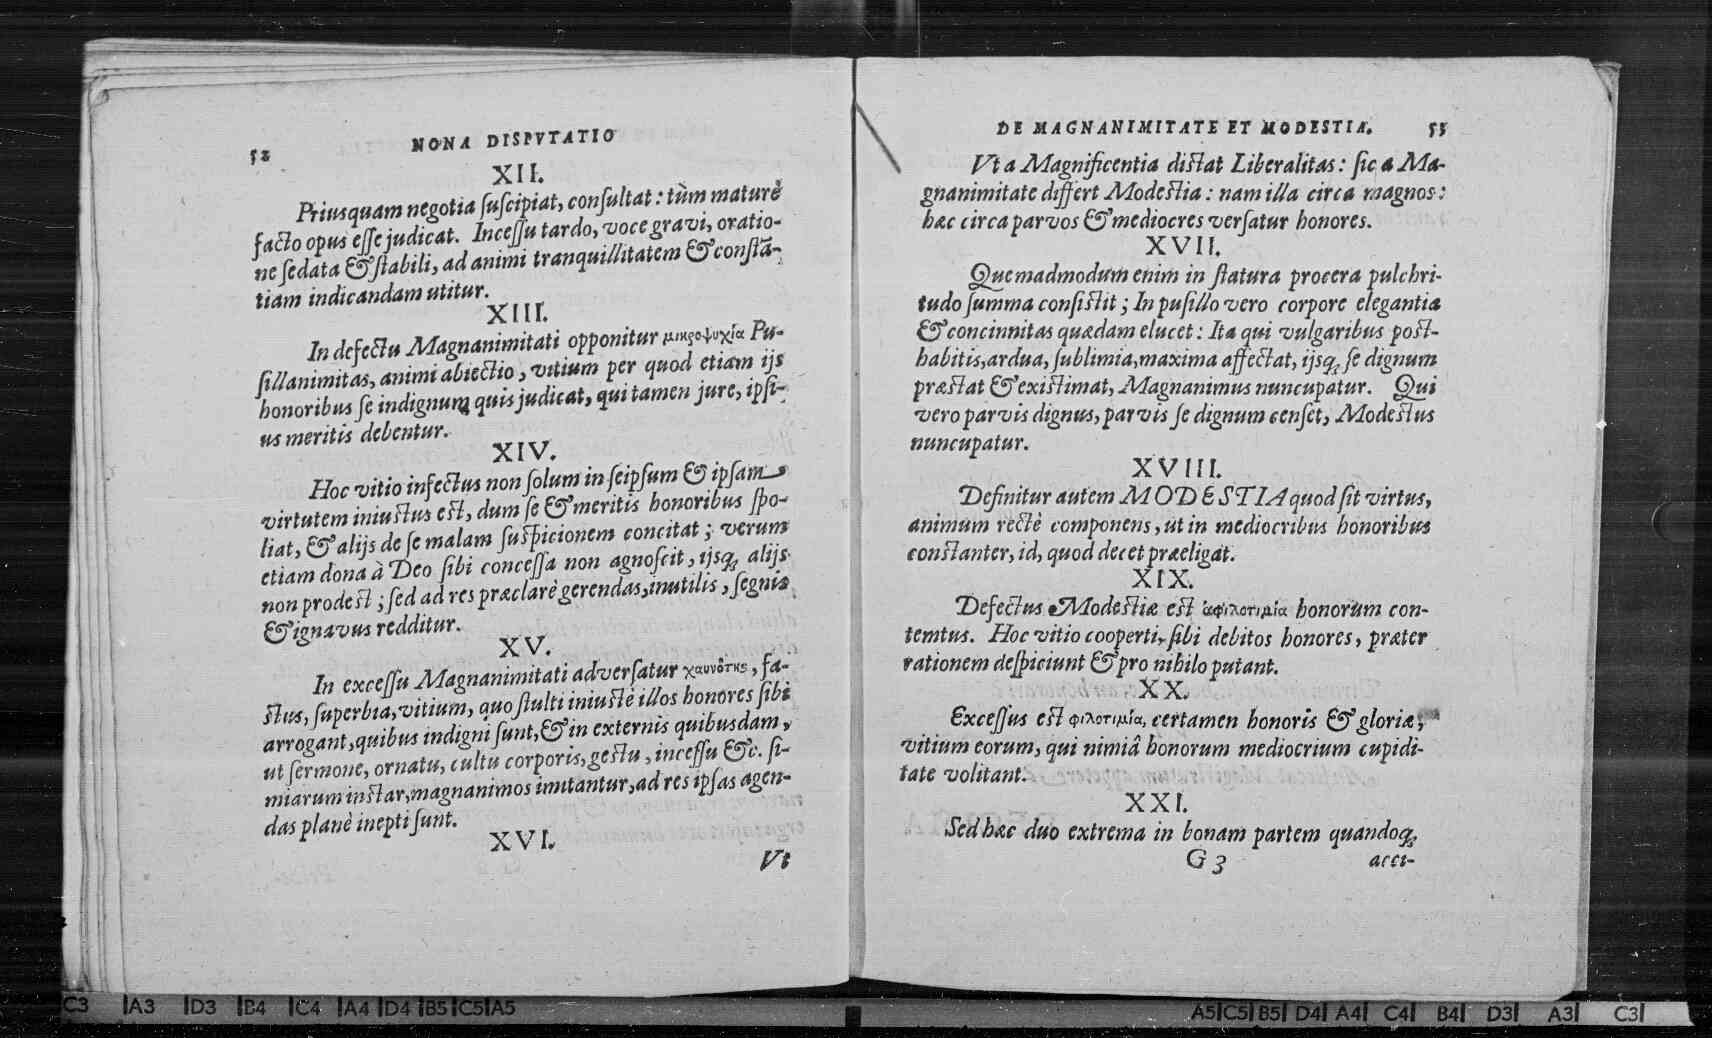 52
NONA DISPVTATIO
XII.
Priusquam negotia ſuſcipiat, conſultat: tùm maturè
facto opus eſſe judicat. Inceſſu tardo, voce gravi, oratio-
ne ſedata & ſtabili, ad animi tranquillitatem & conſtã-
tiam indicandam utitur.
XIII.
In defectu Magnanimitati opponitur μικροψυχία Pu-
ſillanimitas, animi abiectio, vitium per quod etiam ijs
honoribus ſe indignum quis judicat, qui tamen jure, ipſi-
us meritis debentur.
XIV.
Hoc vitio infectus non ſolum in ſeipſum & ipſam
virtutem iniuſtus eſt, dum ſe & meritis honoribus ſpo-
liat, & alijs de ſe malam ſuſpicionem concitat; verum
etiam dona à Deo ſibi conceſſa non agnoſcit, ijsq́; alijs
non prodeſt; ſed ad res præclarè gerendas, inutilis, ſegnis
& ignavus redditur.
XV.
In exceſſu Magnanimitati adverſatur χαυνότης, fa-
ſtus, ſuperbia, vitium, quo ſtulti iniuſtè illos honores ſibi
arrogant, quibus indigni ſunt, & in externis quibusdam,
ut ſermone, ornatu, cultu corporis, geſtu, inceſſu &c. ſi-
miarum inſtar, magnanimos imitantur, ad res ipſas agen-
das planè inepti ſunt.
XVI.
Vt
DE MAGNANIMITATE ET MODESTIA.
53
Vt a Magnificentia diſtat Liberalitas: ſic a Ma-
gnanimitate differt Modeſtia: nam illa circa magnos:
hæc circa parvos & mediocres verſatur honores.
XVII.
Quemadmodum enim in ſtatura procera pulchri-
tudo ſumma conſiſtit; In puſillo vero corpore elegantia
& concinnitas quædam elucet: Ita qui vulgaribus poſt-
habitis, ardua, ſublimia, maxima affectat, ijsq́; ſe dignum
præſtat & exiſtimat, Magnanimus nuncupatur. Qui
vero parvis dignus, parvis ſe dignum cenſet, Modeſtus
nuncupatur.
XVIII.
Definitur autem MODESTIA quod ſit virtus,
animum rectè componens, ut in mediocribus honoribus
conſtanter, id, quod decet præeligat.
XIX.
Defectus Modeſtiæ eſt ἀφιλοτιμία honorum con-
temtus. Hoc vitio cooperti, ſibi debitos honores, præter
rationem deſpiciunt & pro nihilo putant.
XX.
Exceſſus eſt φιλοτιμία, certamen honoris & gloriæ,
vitium eorum, qui nimiâ honorum mediocrium cupidi-
tate volitant.
XXI.
Sed hæc duo extrema in bonam partem quandoq́;
G 3
acci-
C3 A3 D3 B4 C4 A4 D4 B5 C5 A5
A5 C5 B5 D4 A4 C4 B4 D3 A3 C3